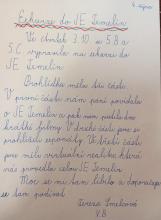 4. října
Exkurze do JE Temelín
Ve čtvrtek 3.10. se 5.B a
5.C vypravila na exkurzi do
JE Temelín.
Prohlídka měla tři části.
V první části nám paní povídala
o JE Temelín a pak nám pustila dva
krátké filmy. V druhé části jsme si
prohlíželi exponáty. Ve třetí části
jsme měli virtuální realitu, která
nás provedla celou JE Temelín.
Moc se mi tam líbilo a doporučuji
se tam podívat.
Tereza
V.B